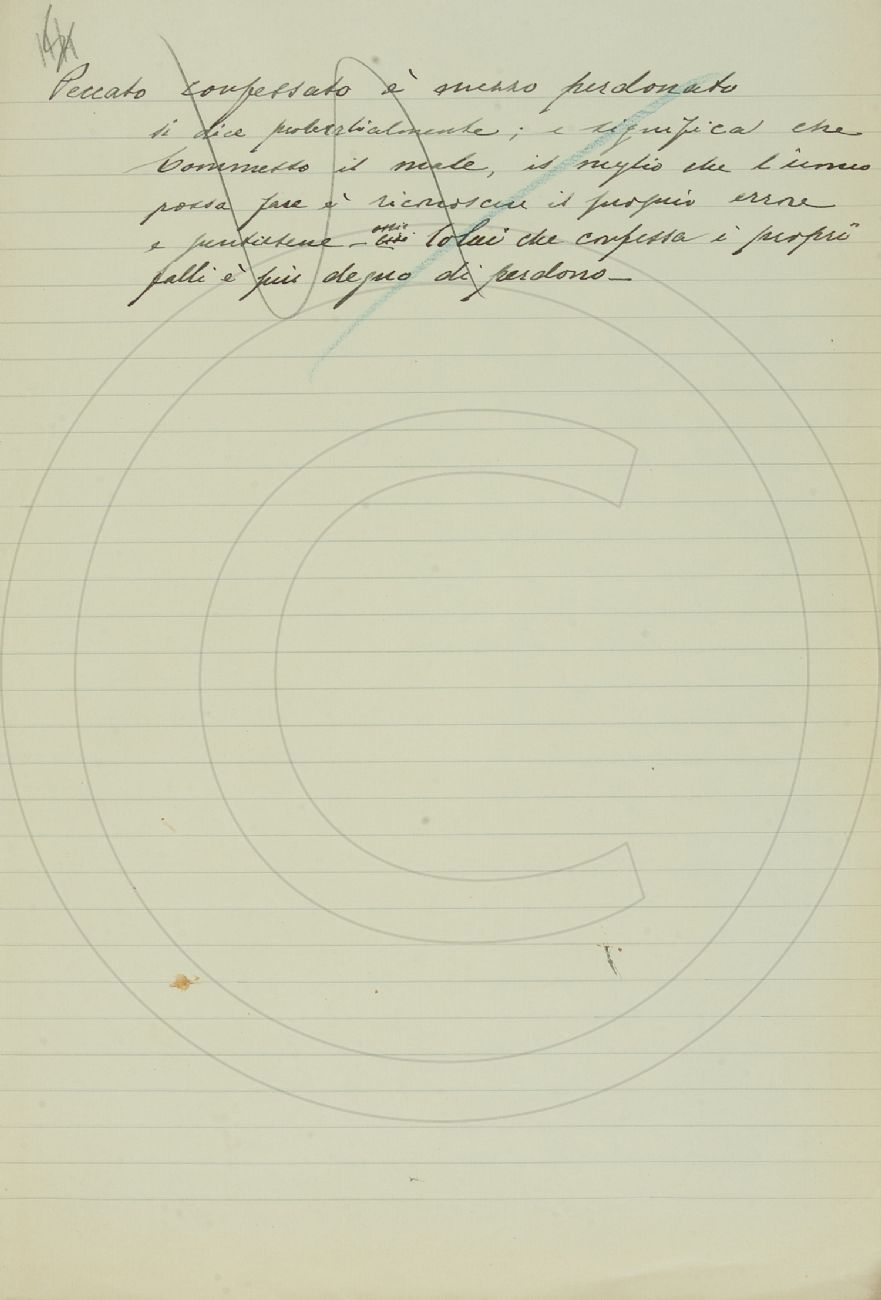 Peccato confessato è mezzo perdonato
si dice proverbialmente; e significa che
Commesso il male, il meglio che l'uomo
possa fare è riconoscere il proprio errore
e pentirsene - Colui che confessa i proprii
falli è più degno di perdono -